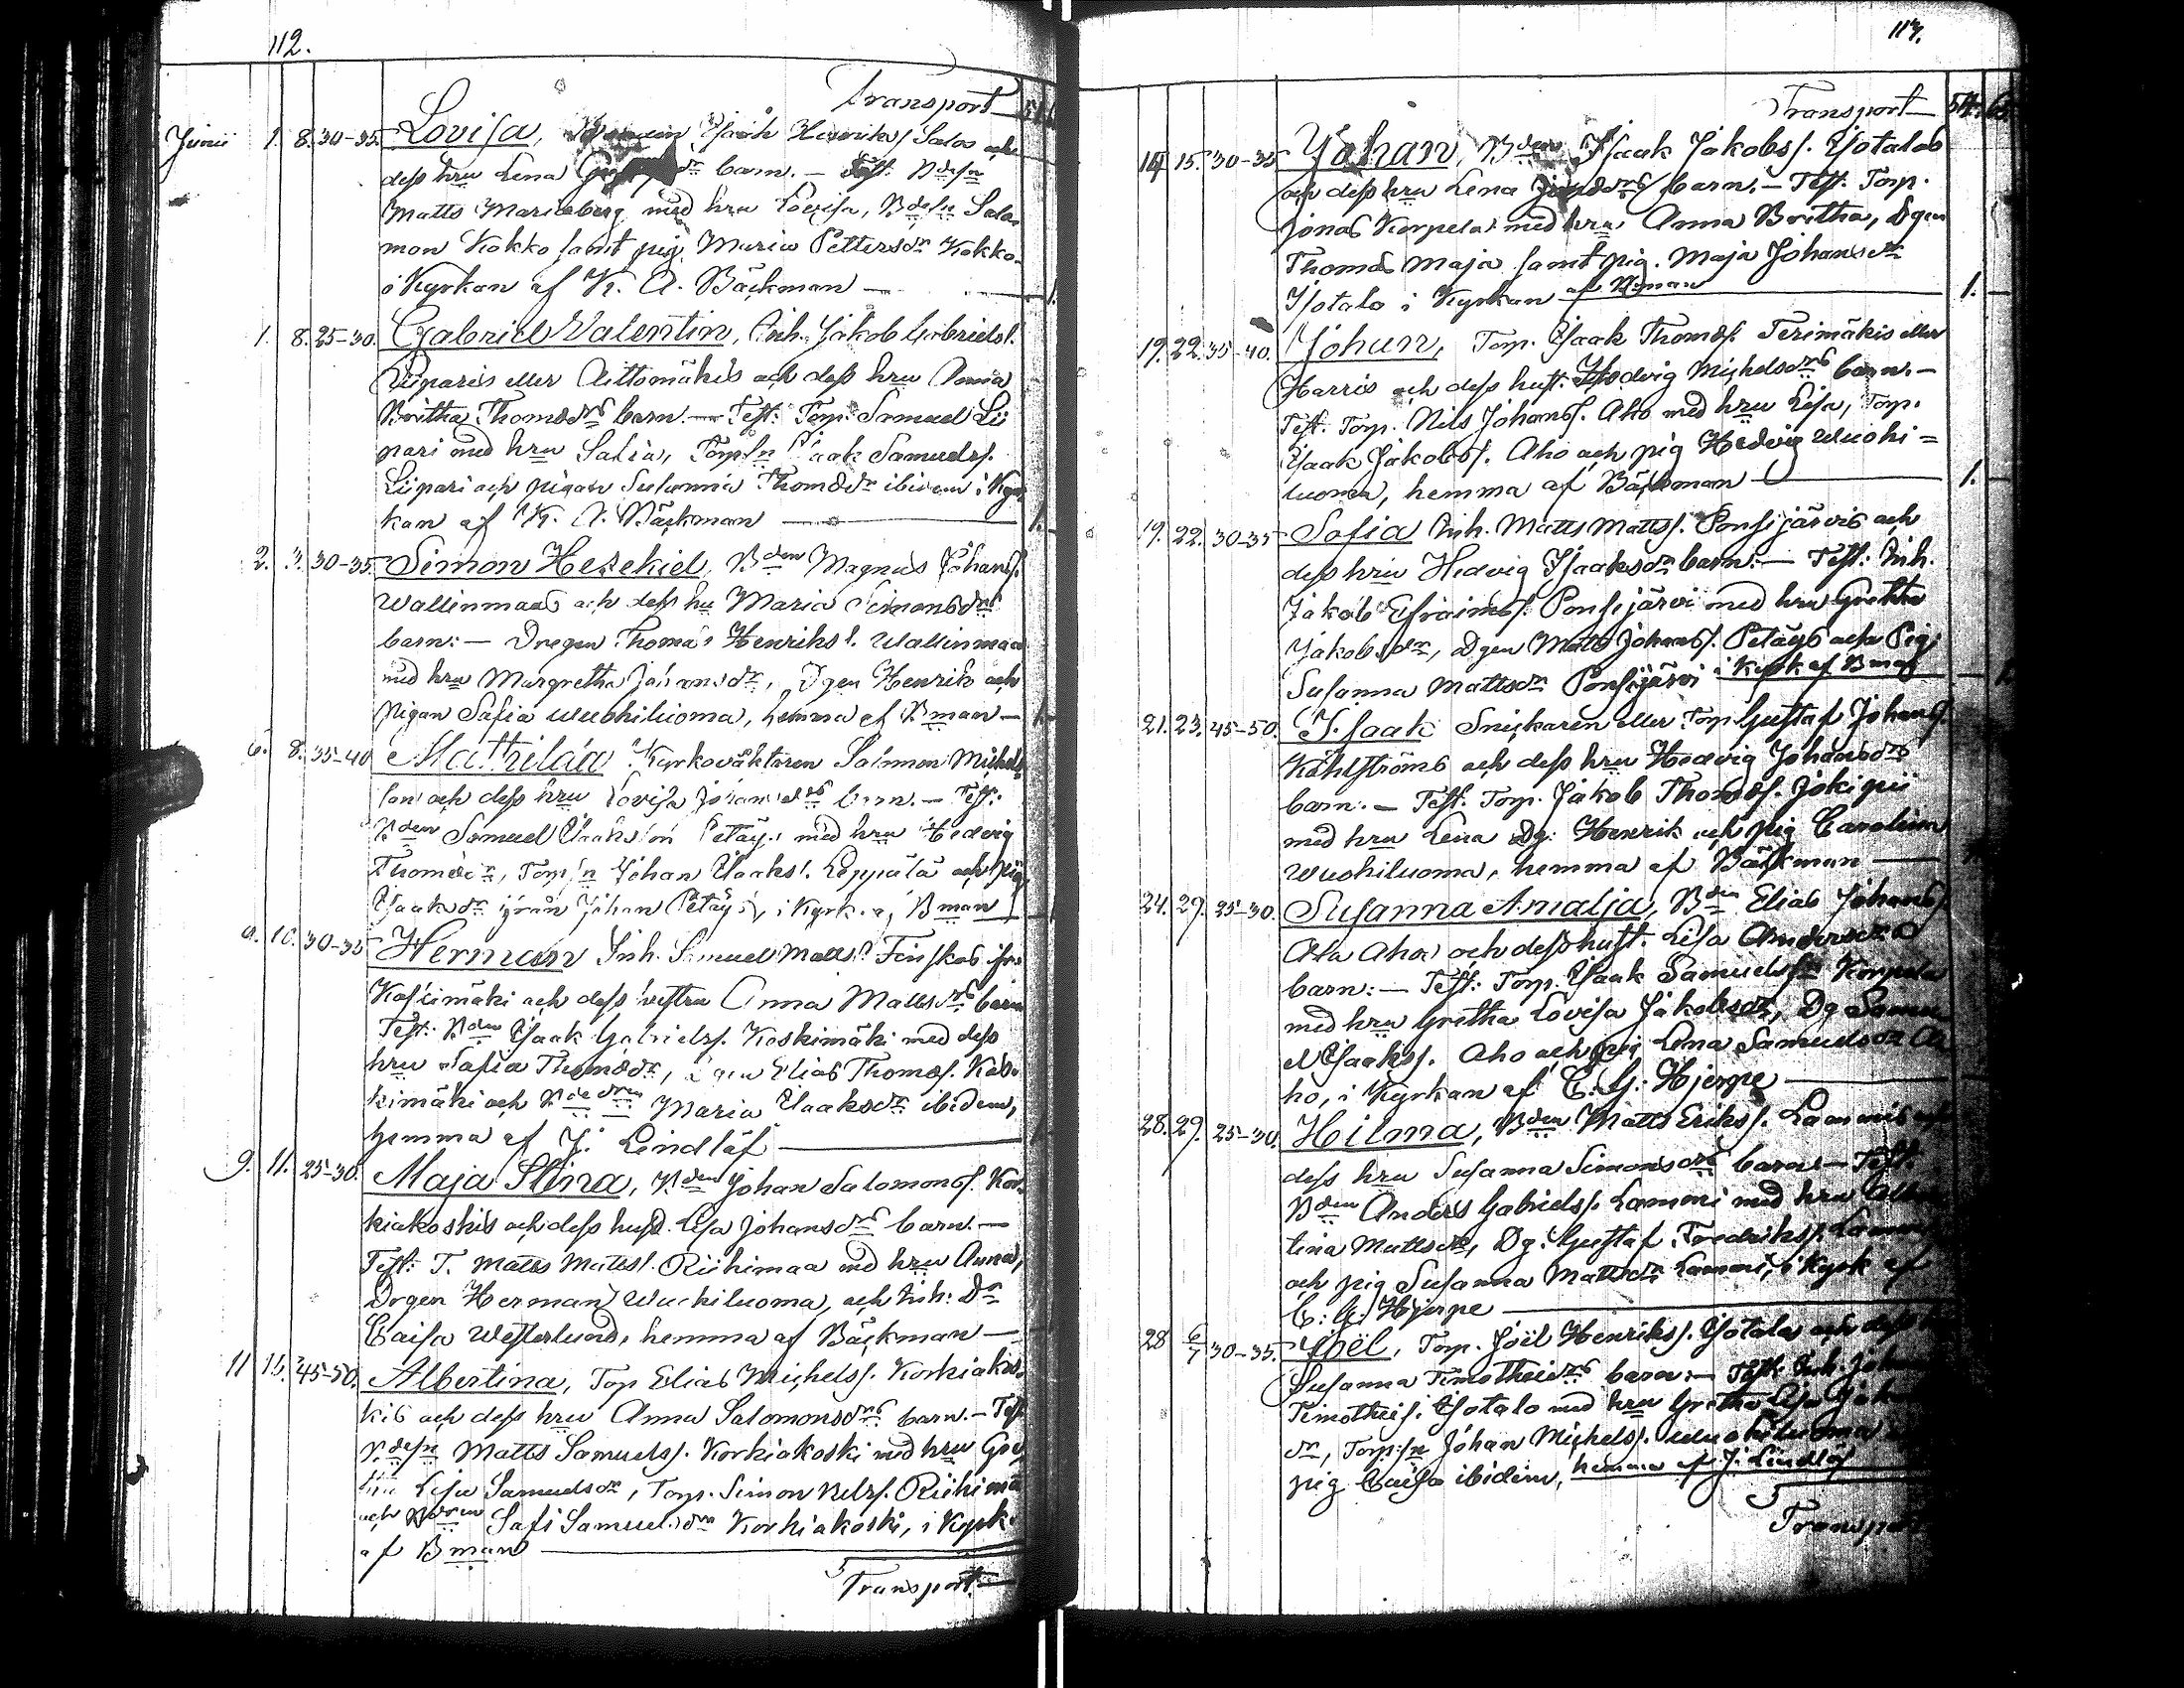 112.
Transport
Junii 1. 8. 30-35. Lovisa, Isaak Henrikss. Salos och
dess hru Lena barn. — Test. Bdesn
Matts Marieberg med hru Lovisa, Bdesn Salo
mon Kokko samt pig. Maria Pettersdr Kokko
i Kyrkan af K. A. Bäckman — 1.
1. 8. 25-30. Gabriel Valentin, Inh. Jakob Gabrielss.
Liiparis eller Aittomäkis och dess hru Anna
Britha Thomasdrs barn. — Test: Torp. Samuel Lii
pari med hru Safia, Torpsn Isaak Samuelss.
Liipari och pigan Susanna Thomasdr ibidem i Kyr
kan af K. A. Bäckman — 1.
2. 3. 30-35. Simon Hesekiel, Bden Magnus Johanss.
Wallinmaas och dess hu Maria Simonsdrs
barn: — Drægen Thomas Henrikss. Wallinmaa
med hru Margretha Johansdr, Dgen Henrik och
Pigan Safia Wuohiluoma, hemma af Bman —
6. 8. 35-40 Mathilda Kyrkoväktaren Salomon Michels
son och dess hru Lovisa Johansdrs barn. — Test:
Bden Samuel Isaksson Petäys med hru Hedvig
Thomasdr, Torpsn Johan Isaakss. Leppälä och pig
Isaaksdr ifrån Johan Petäys, i Kyrk. af Bman
9. 10. 30-35 Herman Inh. Samuel Matts. Finskas ifrå
Koskimäki och dess hustru Anna Mattsdrs barn
Test: Bden Isaak Gabrielss. Koskimäki med dess
hru Safia Thomasdr, Dgen Elias Thomass. Kos
kimäki och Maria Isaaksdr ibidem,
hemma af J. Lindlöf
9. 11. 25-30. Maja Stina, Bden Johan Salomonss. Kor
kiakoskis och dess hust. Lisa Johansdrs barn. —
Test: T. Matts Mattss. Riihimaa med hru Anna,
Drgen Herman Wuohiluoma, och Inh: Dr
Caisa Westerlund, hemma af Bäckman —
11 15. 45-50. Albertina, Torp Elias Michelss. Korkiakos
kis och dess hru Anna Salomonsdrs barn. — Test
Bdesn Matts Samuelss. Korkiakoski med hru Gre
tha Lisa Samuelsdr, Torp. Simon Nelss. Riihimaa
och Safi Samuelsdr Korkiakoski, i Kyrk.
af Bman
Transport
113.
Transport
14 15. 30-35 Johan, Bden Isaak Jakobss. Yotalos
och dess hru Lena barn. — Test. Torp.
Jonas Korpela med hru Anna Britha, Dgen
Thomas Maja samt pig. Maja Johansdr
Yotalo i Kyrkan af Bman 1.
19. 22. 35-40. Johan, Torp. Isaak Thomass. Terimäkis eller
Harris och dess hust. Hedvig Michelsdrs barn. —
Test. Torp. Nils Johanss. Aho med hru Lisa, Torp.
Isaak Jakobss. Aho och pig Hedvig Wuohi=
luoma, hemma af Bäckman 1.
19. 22. 30-35 Safia Inh. Matts Mattss. Ponsijärvis och
dess hru Hedvig Isaaksdr barn: — Test: Inh.
Jakob Efraimss. Ponsijärvi med hru Gretha
Jakobsdr, Dgen Matts Johanss. Petäys och Pig
Susanna Mattsdr Ponsijärvi i Kyrk af Bman
21. 23. 45-50. Isaak Snickaren eller Torp Gustaf Johanss.
Kåhlströms och dess hru Hedvig Johansdrs
barn. — Test. Torp. Jakob Thomass. Jokipii
med hru Lena Dg: Henrik och pig Carolina
Wuohiluoma, hemma af Bäckman
24. 29. 25-30. Susanna Amalja, Bden Elias Johanss.
Ala Aho och dess hust. Lisa Andersdrs
barn: — Test: Torp. Isaak Samuelssn Korpela
med hru Gretha Lovisa Jakobsdr, Dg Samu
el Isaakss. Aho och pig Lena Samuelsdr A
ho, i Kyrkan af C. G. Hjerpe
28. 29. 25-30. Hilma, Bden Matts Erikss. Lammis och
dess hru Susanna Simonsdrs barn — Test.
Bden Anders Gabrielss. Lammi med hru Alber
tina Mattsdr, Dg. Gustaf Fredrikss. Lammi
och pig Susanna Mattsdr Lammi, i Kyrk af
C: G. Hjerpe
28 6/7 30-35. Joel, Torp. Joël Henrikss. Yotalo och dess
Susanna Timotheidrs barn: — Test. Inh. Johan
Timotheis. Yotalo med hru Gretha Lisa Joh
dr, Torpsn Johan Michelss. Wuohiluoma
pig Caisa ibidem, hemma af J. Lindlöf
Transport